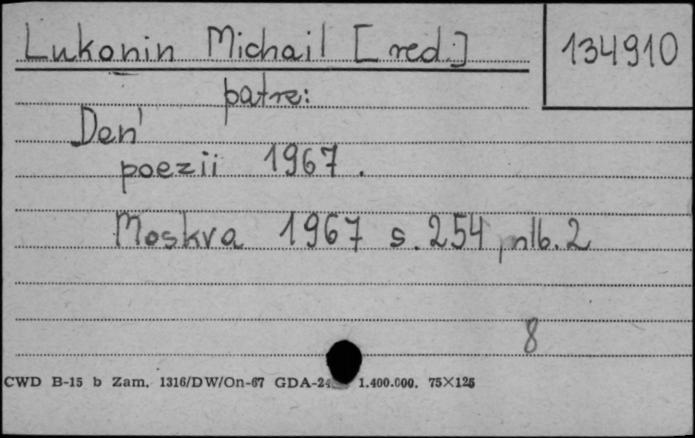 Lukonin Michail [red.]
134910
patre:
Den'
poezii 1967.
Moskva 1967 s. 254, nlb. 2
8
CWD B-15 b Zam. 1316/DW/On-67 GDA-24 1.400.000. 75X125